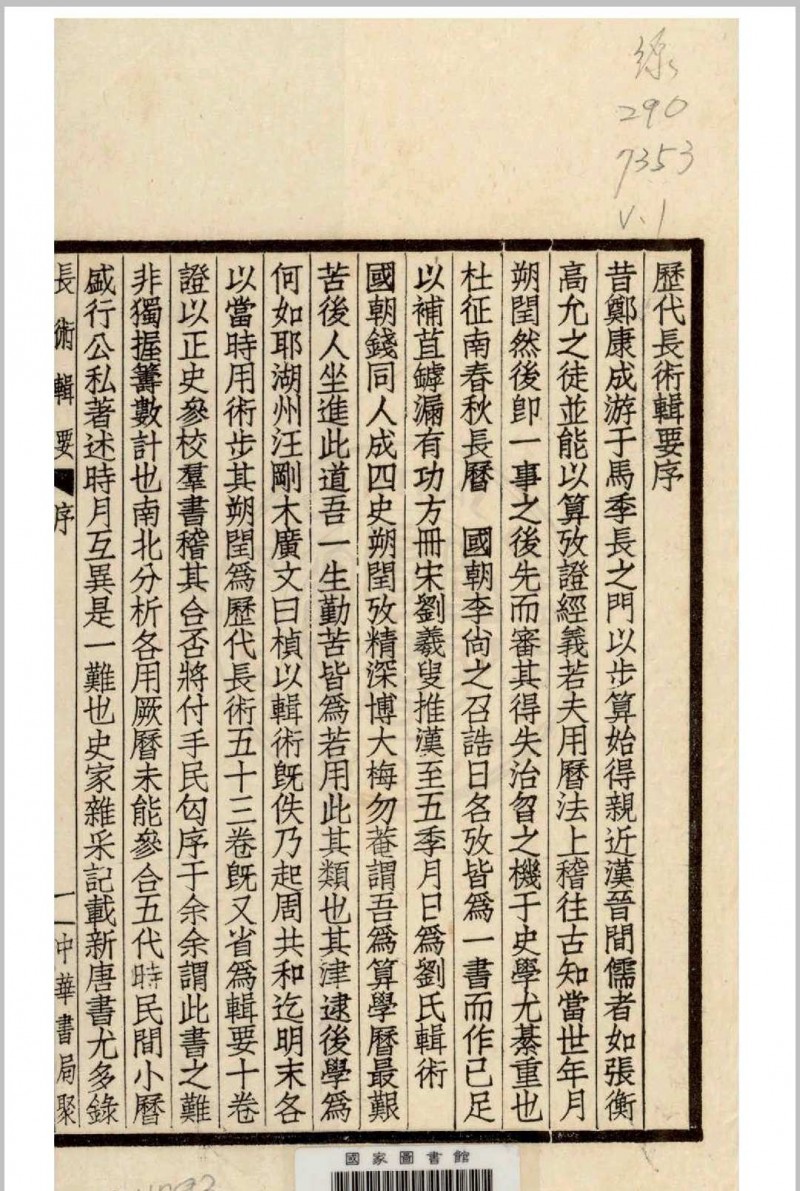 線
290
7353
V.1
歷代長術輯要序
昔鄭康成游于馬季長之門以步算始得親近漢晉間儒者如張衡
高允之徒並能以算攷證經義若夫用曆法上稽往古知當世年月
朔閏然後卽一事之後先而審其得失治曶之機于史學尤綦重也
杜征南春秋長曆 國朝李尙之召誥日名攷皆爲一書而作已足
以補苴罅漏有功方冊宋劉羲叟推漢至五季月日爲劉氏輯術
國朝錢同人成四史朔閏攷精深博大梅勿菴謂吾爲算學曆最艱
苦後人坐進此道吾一生勤苦皆爲若用此其類也其津逮後學爲
何如耶湖州汪剛木廣文曰楨以輯術旣佚乃起周共和迄明末各
以當時用術步其朔閏爲歷代長術五十三卷旣又省爲輯要十卷
證以正史參校羣書稽其合否將付手民匃序于余余謂此書之難
非獨握籌數計也南北分析各用厥曆未能參合五代時民間小曆
盛行公私著述時月互異是一難也史家雜采記載新唐書尤多錄
長術輯要 序 一 中華書局聚
國家圖書館